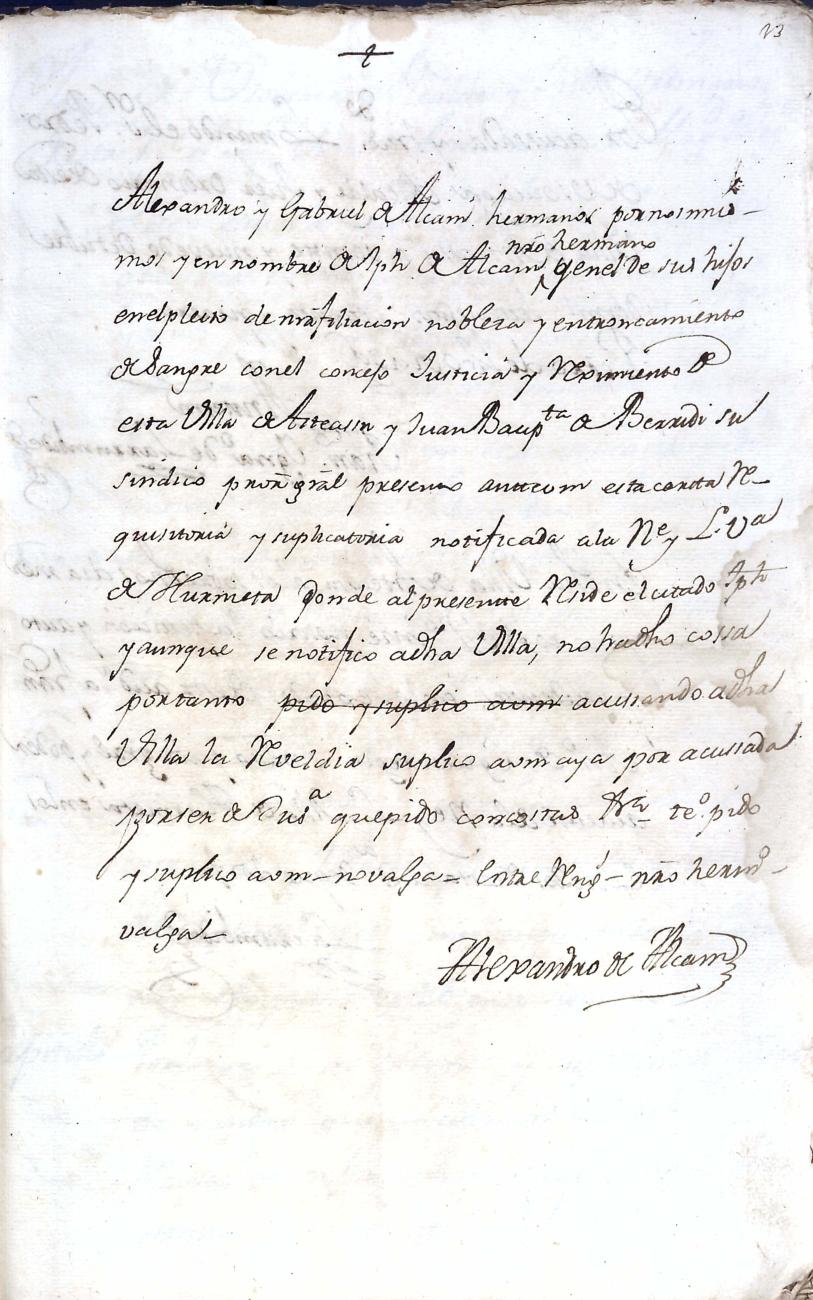 23
Alexandro y Gabriel de Alcain hermanos por nos mis-
nrō hermano
mos y en nombre de Jph de Alcain y en el de sus hijos
en el pleito de nrā filiacion nobleza y entroncamiento
de sangre con el concejo Justicia y Reximiento de
esta Villa de Asteasu y Juan Baupta de Berridi su
sindico pror grāl presento ante vm esta carta Re-
quisitoria y suplicatoria notificada a la Ne y L. Va
de Hurnieta donde al presente Reside el citado Jph
y aunque se notifico a dha Villa, no ha dho cossa
por tanto pido y suplico a vm acussando a dha
Villa la Reveldia suplico a vm aya por acussada
por ser de Dusa que pido con costas &a te.o pido
y suplico a vm – no valga = Entre Rengs – nrō hermo –
valga –
Alexandro de Alcain